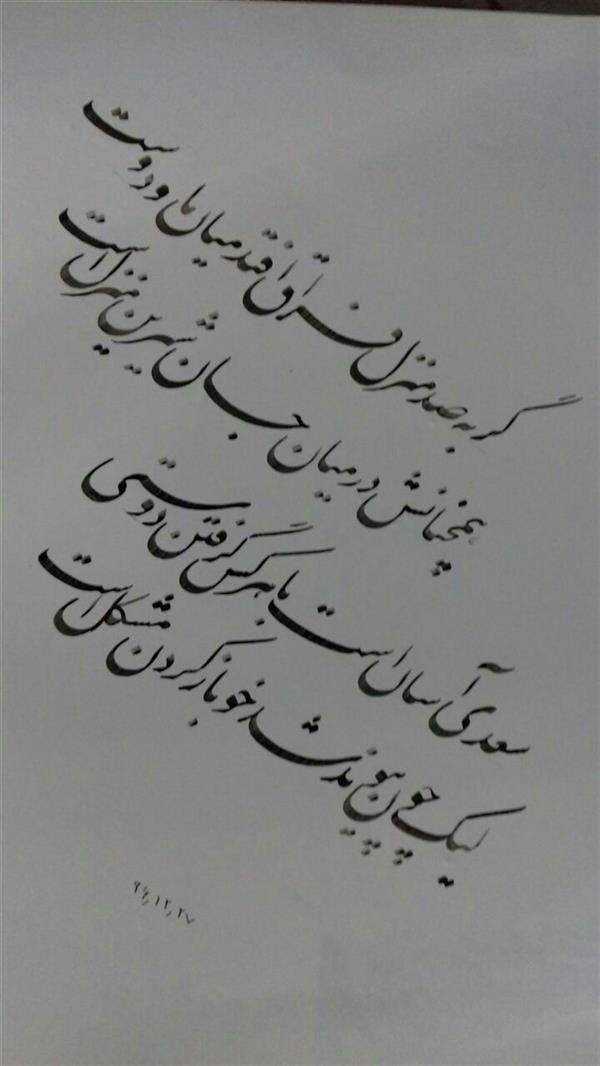 گر به صد منزل فراق افتد میان ما و دوست
همچنانش در میان جان شیرین منزل است
سعدی آسان است با هر کس گرفتن دوستی
لیک چون پیوند شد خو باز کردن مشکل است
۹۶,۱۲,۲۷